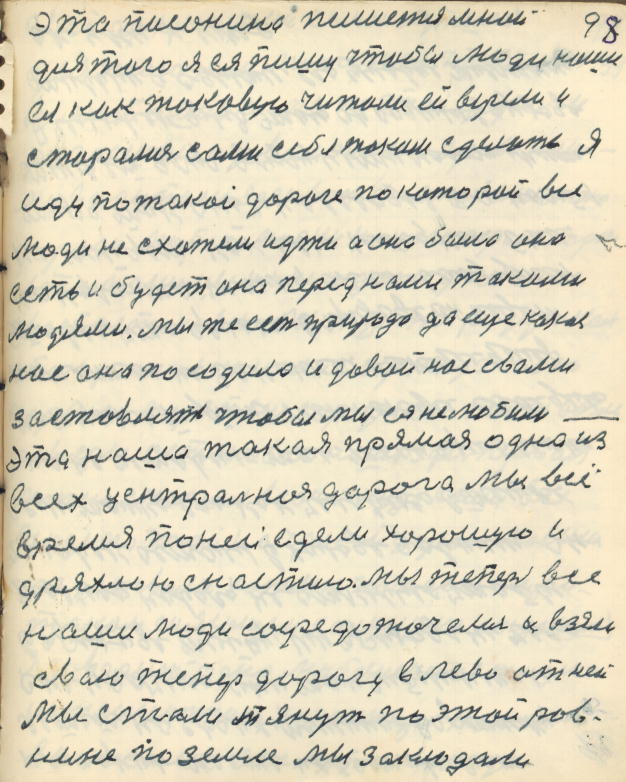 Эта писонина пишется мной 98
для того я ея пишу чтобы люди наши
ея как таковую читали ей верели и
старалися сами себя таким сделать я
иду по такой дороге по которой все
люди не схотели идти а она была она
есть и будет она перед нами такими
людями. мы же есть природа да еще какая
нас она по содила и давай нас свами
заставлять чтобы мы ея не любили —
Эта наша такая прямая одна из
всех централноя дорога мы всё
время по ней едели хорошую и
дряхлою снастию. мы тепер все
наши люди сосредоточелися и взяли
свою тепер дорогу в лево от ней
мы стали тянут по этой ров-
нине по земле мы закладали